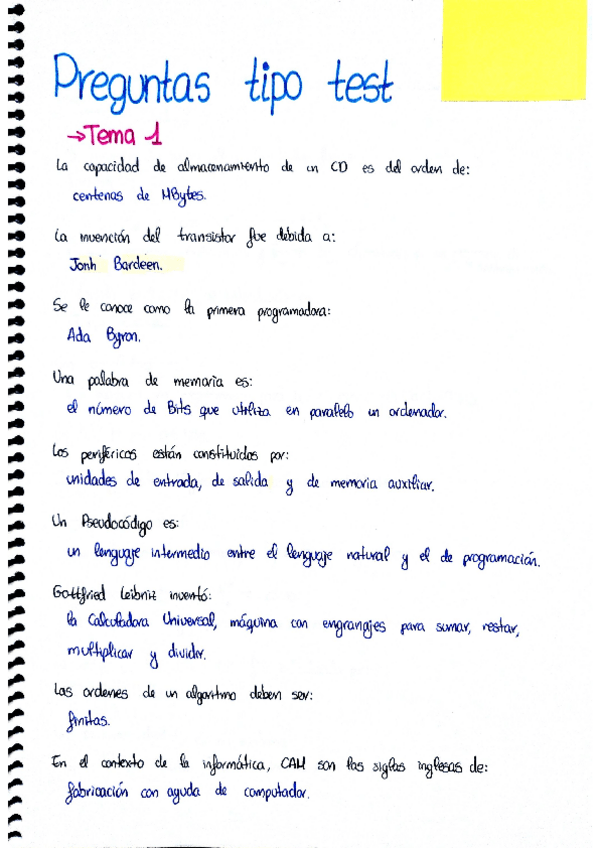 Preguntas tipo test
→Tema 1
La capacidad de almacenamiento de un CD es del orden de:
centenas de MBytes.
La invención del transistor fue debida a:
Jonh Bardeen.
Se le conoce como la primera programadora:
Ada Byron.
Una palabra de memoria es:
el número de Bits que utiliza en paralelo un ordenador.
Los periféricos están constituidos por:
unidades de entrada, de salida y de memoria auxiliar.
Un Pseudocódigo es:
un lenguaje intermedio entre el lenguaje natural y el de programación.
Gottfried Leibniz inventó:
la Calculadora Universal, máquina con engranajes para sumar, restar,
multiplicar y dividir.
Las ordenes de un algoritmo deben ser:
finitas.
En el contexto de la informática, CAM son las siglas inglesas de:
fabricación con ayuda de computador.